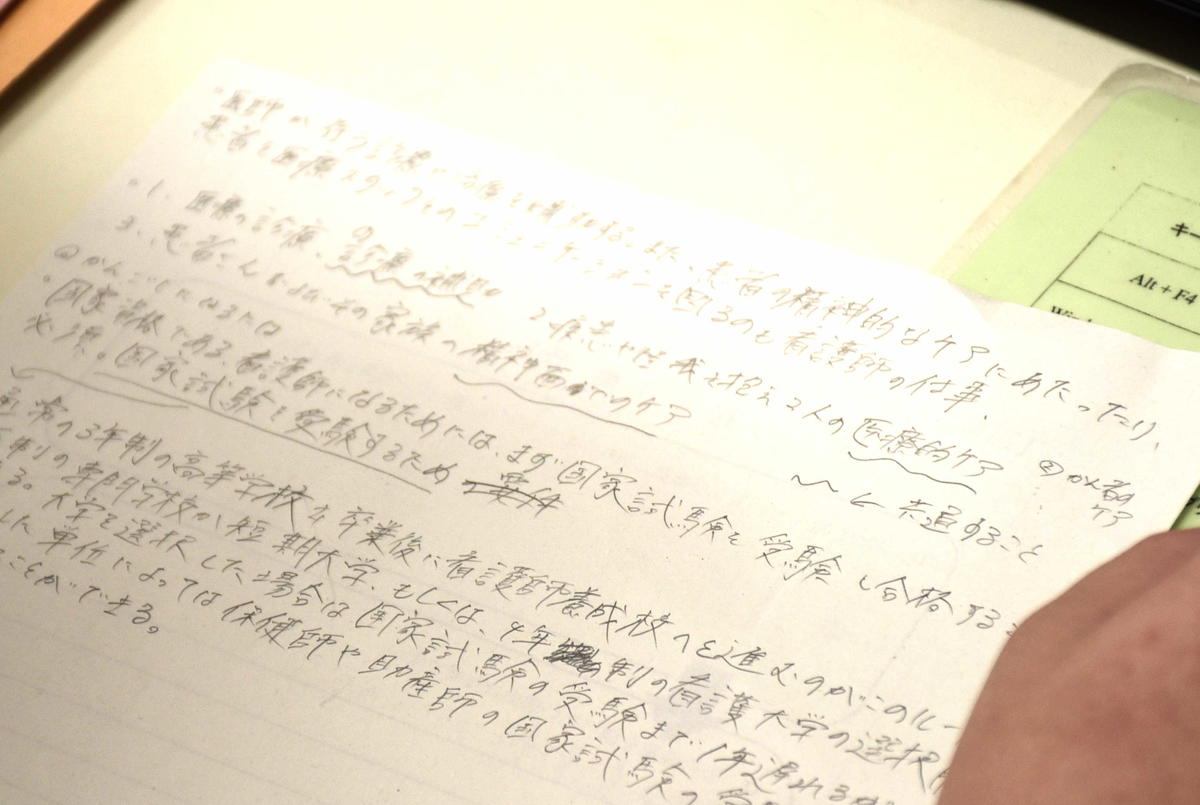 ・医師が行う診療の介助をする。また、患者の精神的なケアにあたったり、
患者と医療スタッフのコミュニケーションを図るのも看護師の仕事。
・1、医療の診療、診療の補助。 2 疾患や怪我を抱えた人の医療的ケア
3、患者さんおよびその家族の精神面でのケア
と 共通すること
② かん者の
ケア
◎かんごしになるには
・国家資格である看護師になるためには、まず国家試験を受験し合格する
必須。国家試験を受験するため
常の3年制の高等学校を卒業後に看護師養成校へと進むのがこのルー
制の専門学校か短期大学、もしくは、4年制の看護大学の選択
る。大学を選択した場合は国家試験の受験まで1年遅れるが
した単位によっては保健師や助産師の国家試験の
ことができる。
キー
Alt + F4
Wind